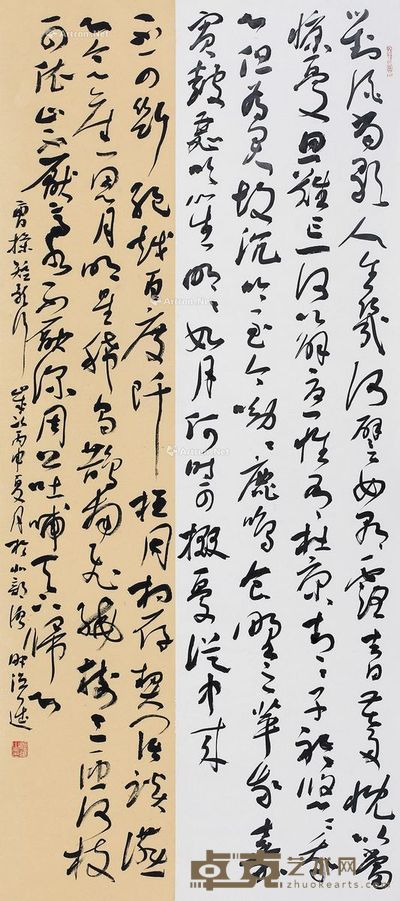 對酒當歌人生幾何譬如朝露去日苦多慨以當
慷憂思難忘何以解憂惟有杜康青青子衿悠悠我
心但為君故沉吟至今呦呦鹿鳴食野之苹我有嘉
賓鼓瑟吹笙明明如月何時可掇憂從中來
不可斷絕越陌度阡枉用相存契闊談讌
心念舊恩月明星稀烏鵲南飛繞樹三匝何枝
可依山不厭高水不厭深周公吐哺天下歸心
曹操短歌行 歲次丙申夏月於北部灣
Artron.Net
卓克艺术网
zhuokearts.com